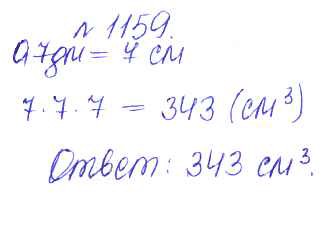 № 1159.
0,7дм = 7 см
7 · 7 · 7 = 343 (см³)
Ответ: 343 см³.